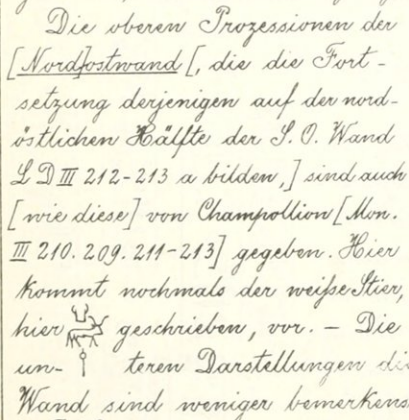 Die oberen Prozessionen der
[Nord]ostwand [, die die Fort-
setzung derjenigen auf der nord-
östlichen Hälfte der S. O. Wand
L D III 212-213 a bilden,] sind auch
[wie diese] von Champollion [Mon.
III 210. 209. 211-213] gegeben. Hier
kommt nochmals der weiße Stier,
hier geschrieben, vor. — Die
un- teren Darstellungen
Wand sind weniger